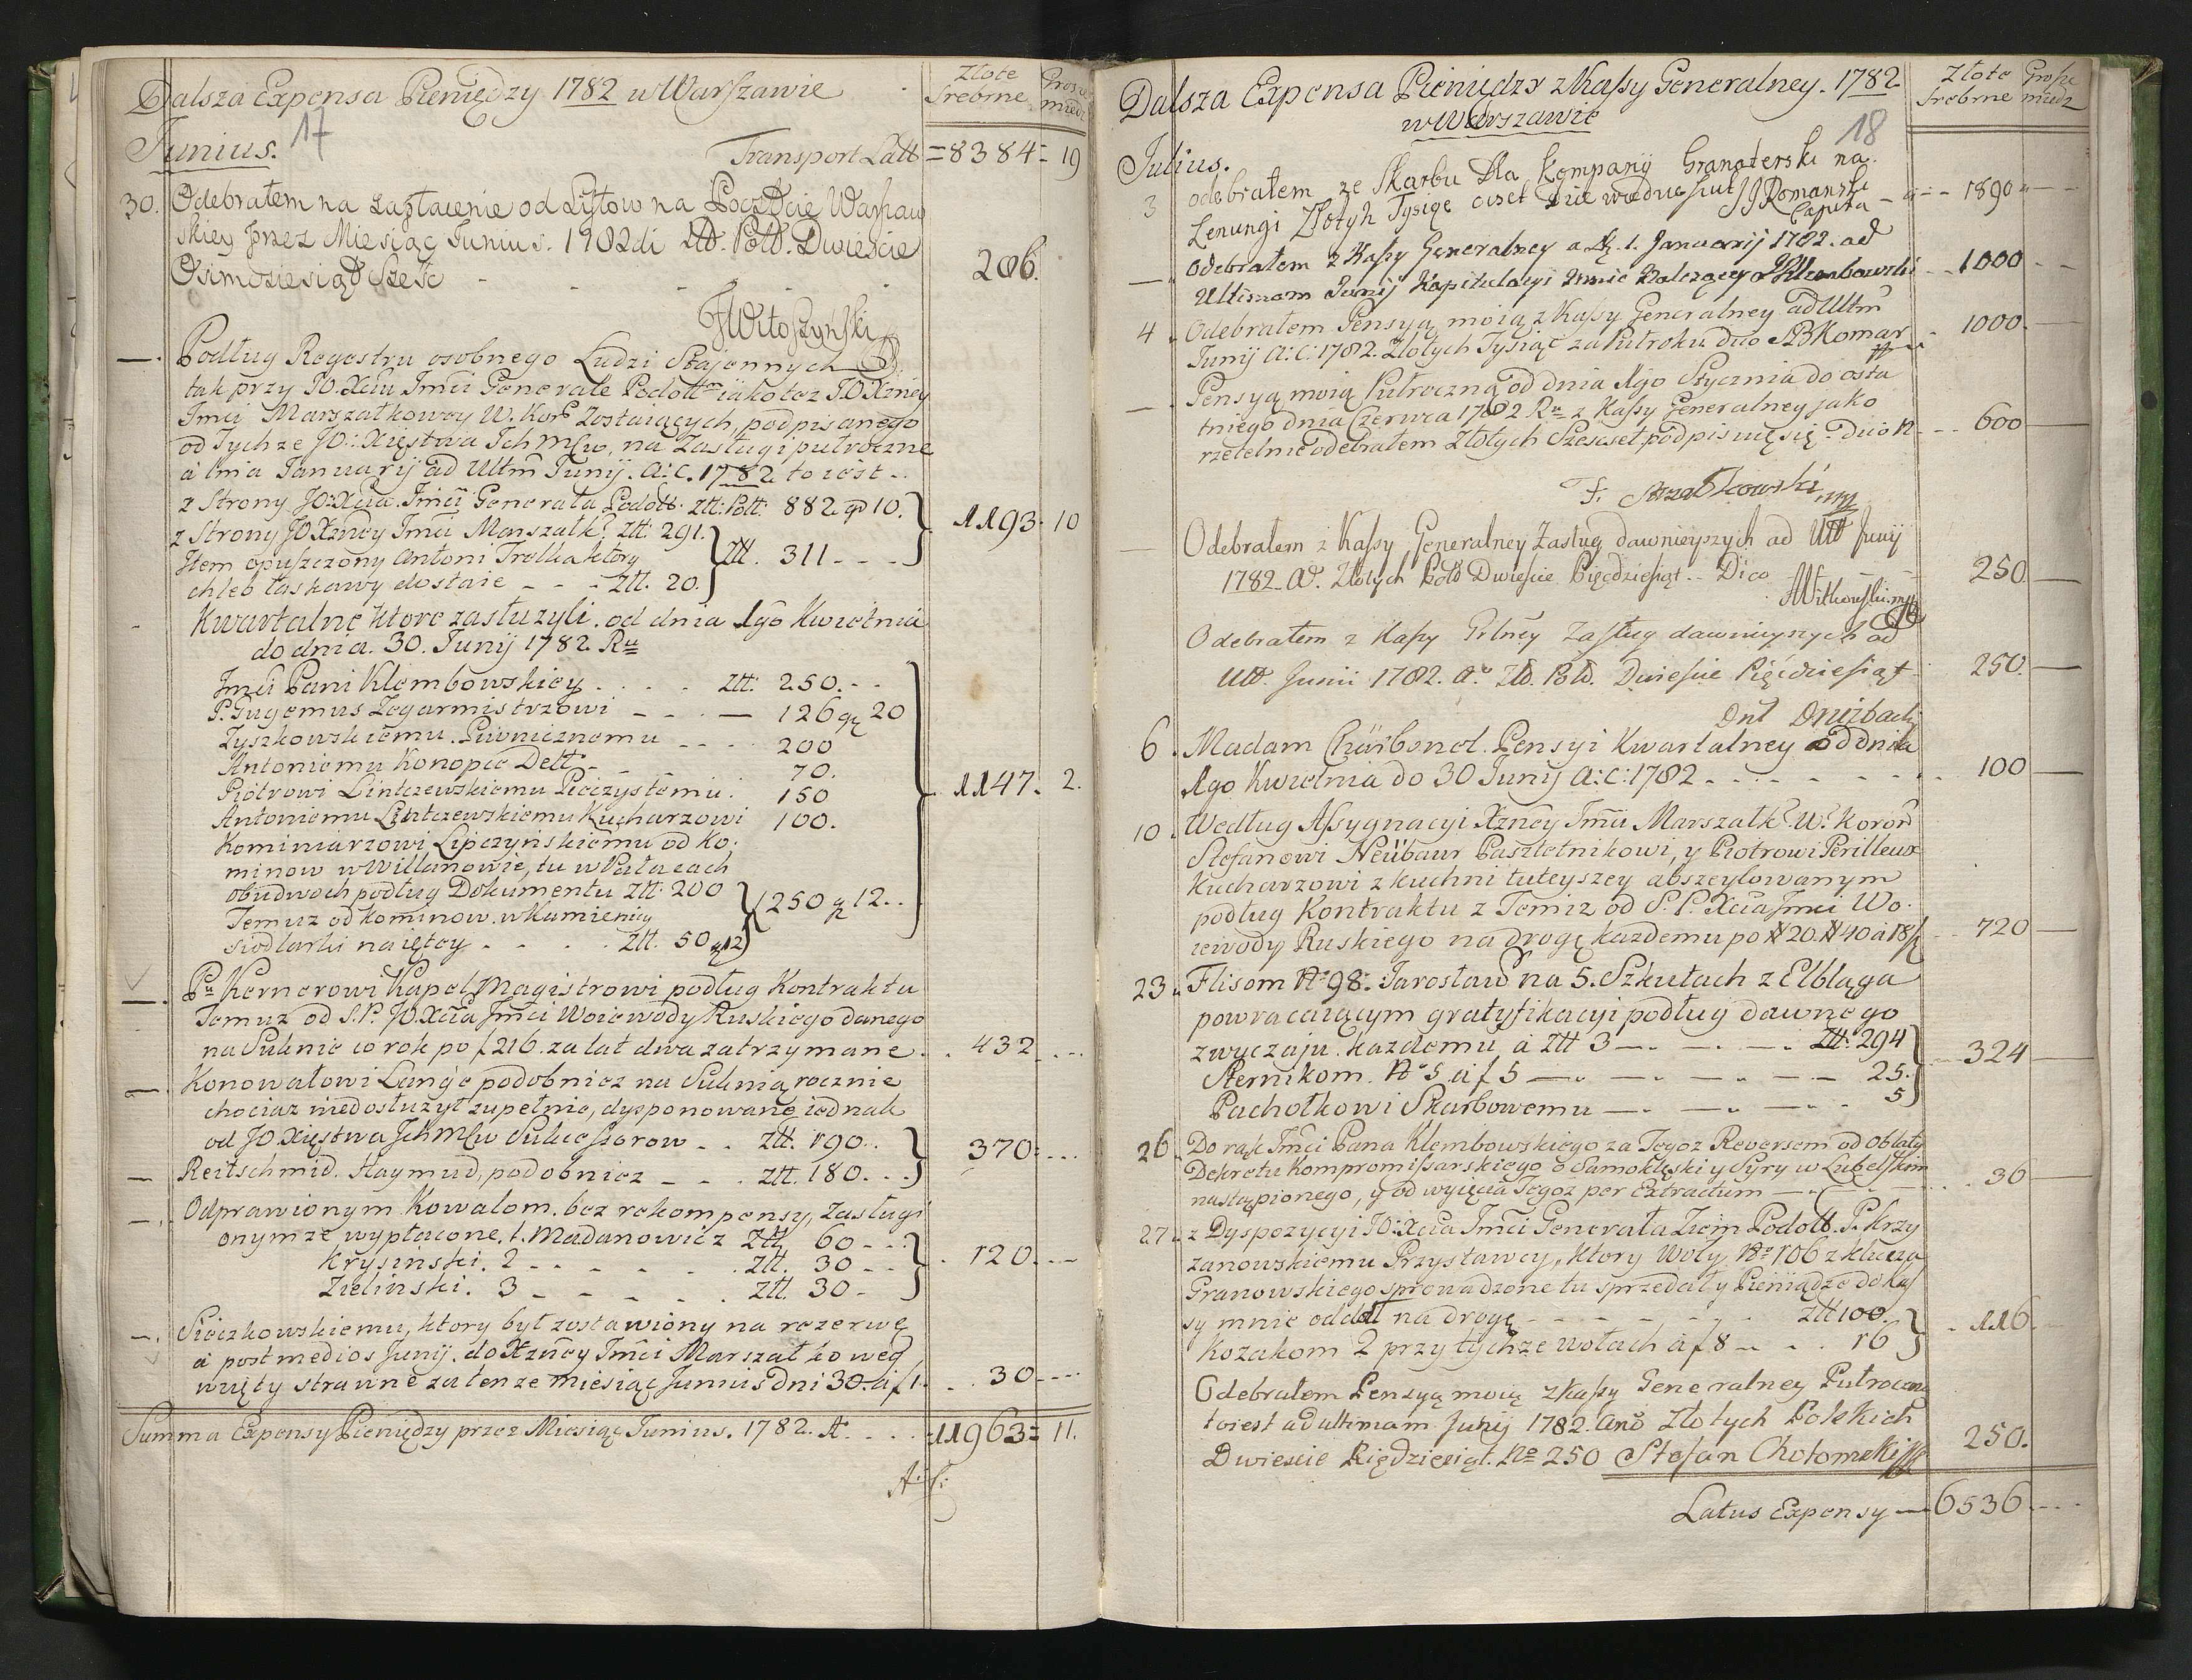 Dalsza Expensa Pieniędzy 1782 w Warszawie
Złote Srebrne
Grosze miedz
17
Junius.
Transport Latt = 8384 = 19
30. Odebrałem na zapłacenie od Lystow na Poczdcie Warszaw
skiey przez Miesiąc Junius. 1782 di Ztt. Poll. Dwieście
Osimdziesiąd Sześć - - - - 286.
JWitoszyński
—. Podług Regestru osobnego Ludzi Stajennych
tak przy JO. Xciu Jmci Generale Podoll iako tez JO Xżney
Jmci Marszałkowey W. Kor. Zostaiących, podpisanego
od Tychze JO: Xięstwa Ich Młw, na Zasługi pułroczne
a 1ma Januarij ad Ultm Junij. a: c. 1782 to iest..
z Strony JO: Xcia Jmci Generała Podoll. Ztt: Poll: 882 gr 10.
z Strony JO Xżney Jmci Marszałk. Ztt: 291.
1193. 10
Item opuszczony Antoni Trelka ktory
Ztt. 311 - - -
chleb łaskawy dostaie - - - Ztt. 20.
Kwartalne ktore zasłuzyli. od dnia 1go Kwietnia
do dnia. 30. Junij 1782. Ru
Jmci Pani Klembowskiey . . . . Ztt: 250. - -
P. Gugemus Zegarmistrzowi - - - — 126 gr 20
Zyszkowskiemu. Piwnicznemu - - - 200
Antoniemu Konopce Dett - - 70.
Piotrowi Lintczewskiemu Pieczystemu. 150
1147. 2.
Antoniemu Lintczewskiemu Kucharzowi 100.
Kominiarzowi Lipczyńskiemu od Ko.
minow w Willanowie, tu w Pałacach
obudwoch podług Dokumentu Ztt: 200
250 gr 12..
Temuz od kominow. w Kamienicy
Siodlarki naiętey - . . . Ztt. 50 gr 12
—. Pu Kernerowi Kapel Magistrowi podług Kontraktu
Temuz od S. P. JO. Xcia Jmci Woiewody Ruskiego danego
na Suknie co rok po f 216. za lat dwa zatrzymane . . 432 - - -
—. Konowałowi Lange podobniez na Suknią rocznie
chociaz niedosłuzył zupełnie, dysponowane iednak
od JO Xięstwa Ich Młw Sukcessorow - . Ztt. 190..
370: . . .
— Reitschmid. Haymud, podobniez - - . Ztt. 180. . .
—. Odprawionym Kowalom. bez rekompensy, Zasługi
onymze wypłacone. 1. Madanowicz Ztt 60 - - :
Krysinski. 2 - - - - - Ztt. 30 - -
. 120. - - -
Zielinski. 3 - - - - . Ztt. 30 -
—. Sieczkowskiemu, ktory był zostawiony na rezerwę
a post medios Junij. do Xżney Jmci Marszałkowey
wzięty strawne za tenze miesiąc Junius Dni 30. a f 1. . . 30 - - -
Summa Expensy Pieniędzy przez Miesiąc Junius. 1782. A. . . . = 11963 = 11.
Dalsza Expensa Pieniędzy z Kassy Generalney. 1782
w Warszawie
Złote Srebrne
Grosze miedz
18
Julius.
3 odebrałem ze Skarbu dla Kompanij Granaterski na
Lenungi Złotyh Tysiąc ciset Dziewiedziesiut JJRomanski
Capita - 1890
— Odebrałem z Kassy Generalney a d. 1. Januarij 1782. ad
Ultimam Junij Kapitulacyi mnie należącey Klembowski - - 1000 - -
4. Odebrałem Pensyą moią z Kassy Generalney ad Ultm
Junij A: C: 1782. Złotych Tysiąc za Pułroku dico ABKomar . 1000. —
— Pensyą moią Pułroczną od dnia 1go Stycznia do osta
tniego dnia Czerwca 1782 Ru z Kassy Generalney jako
rzetelnie odebrałem Złotych Szescset podpisuię się. dico N - - 600 —
F. Strzałkowski mp
— Odebrałem z Kassy Generalney Zasług dawnieyszych ad Ult Junij
1782. A. Złotych Poll Dwieście Pięćdziesiąt.. Dico 250. —
AWitkowski mp
Odebrałem z Kassy Grlney Zasług dawnieyszych ad
Ult. Junii 1782. A. Ztt. Poll. Dwieście Pięćdziesiąt 250. —
Dnt Druzbacki
6. Madam Charbonel. Pensyi Kwartalney od dnia
1go Kwietnia do 30 Junij A: C: 1782 - - - - - - - 100 —
10. Według Assygnacyi Xżney Jmci Marszałk. W. Koron
Stefanowi Neübaur Pasztetnikowi, y Piotrowi Perilleux
Kucharzowi z kuchni tuteyszey abszeytowanym
podług Kontraktu z Temiz od S. P. Xcia Jmci Wo.
iewody Ruskiego na drogę kazdemu po # 20. # 40 a 18 f - - 720 —
23. Flisom No 98. Jarosław na 5. Szkułach z Elbląga
powracaiącym gratyfikacyi podług dawnego
zwyczaju. kazdemu a Ztt 3 —. —. —. Ztt: 294
- 324 —
Sternikom. No 5 a f 5 —. —. — - — 25.
Pachołkowi Skarbowemu —. —. —. - 5
26. Do rąk Jmci Pana Klembowskiego za Tegoz Rewersem od Oblaty
Dekretu Kompromissarskiego o Samoklęski y Syry w Lubelskim
nastąpionego, y od wyięcia Tegoz per Extractum —. —. . . 36 —
27. z Dyspozycyi JO: Xcia Jmci Generała Ziem Podoll. P. Krzy
zanowskiemu Przystawcy, ktory Woły No 106 z klucza
Granowskiego sprowadzone tu sprzedał y Pieniądze do Kas
sy mnie oddał na drogę - - - - - . Ztt 100.
- 116. -
Kozakom 2 przy tychze wołach a f 8 - . . . 16
Odebrałem Pensyą moią z Kassy Generalney Pułroczną
to iest ad ultimam Junij 1782. Ano Złotych Polskich
Dwieście Pięździesiąt. No 250 Stefan Chotomski mp 250.
Latus Expensy — 6536 - - -